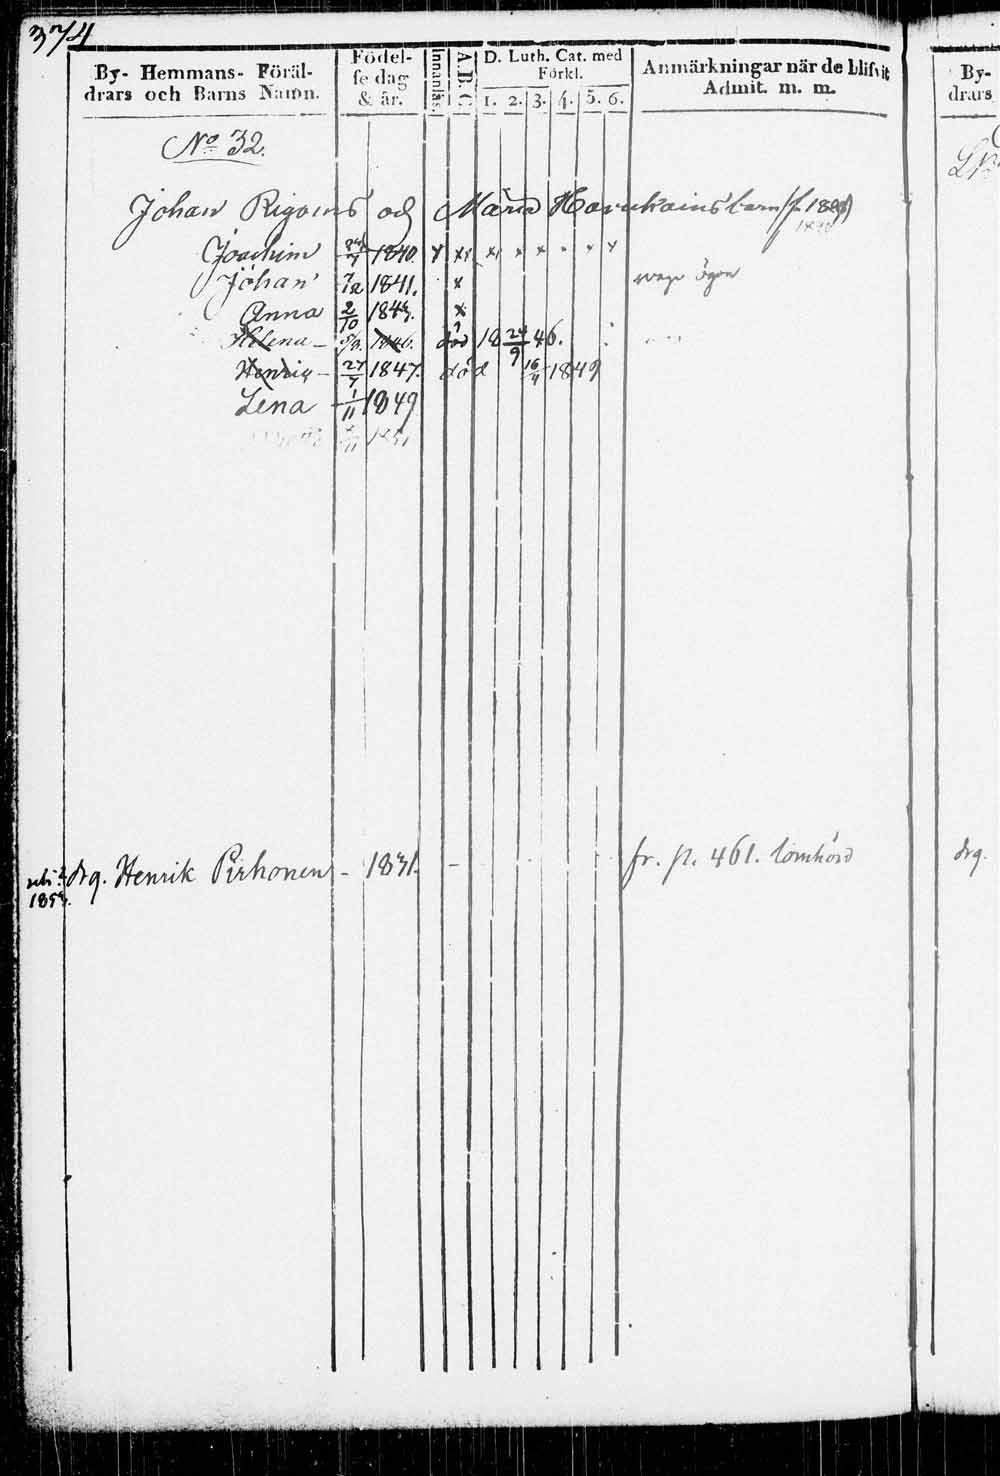 374
By- Hemmans- Föräl-
drars och Barns Namn.
Födel-
se dag
& år.
Innanläs.
A.B.C
D. Luth. Cat. med
Förkl.
1. 2. 3. 4. 5. 6.
Anmärkningar när de blifvit
Admit. m. m.
By-
drars
No 32.
Johan Rigoins och Maria Havukains barn
Joachim 1840 x x x x x x x x
Johan 7/12 1841. x ögon
Anna 2/10 1843. x
Helena - 1846. död 18 24/9 46.
Henric - 27/7 1847. död 16/4 1849
Lena 1/11 1849
drg. Henrik Pirhonen - 1831. - fr. p. 461. lomhörd
drg.